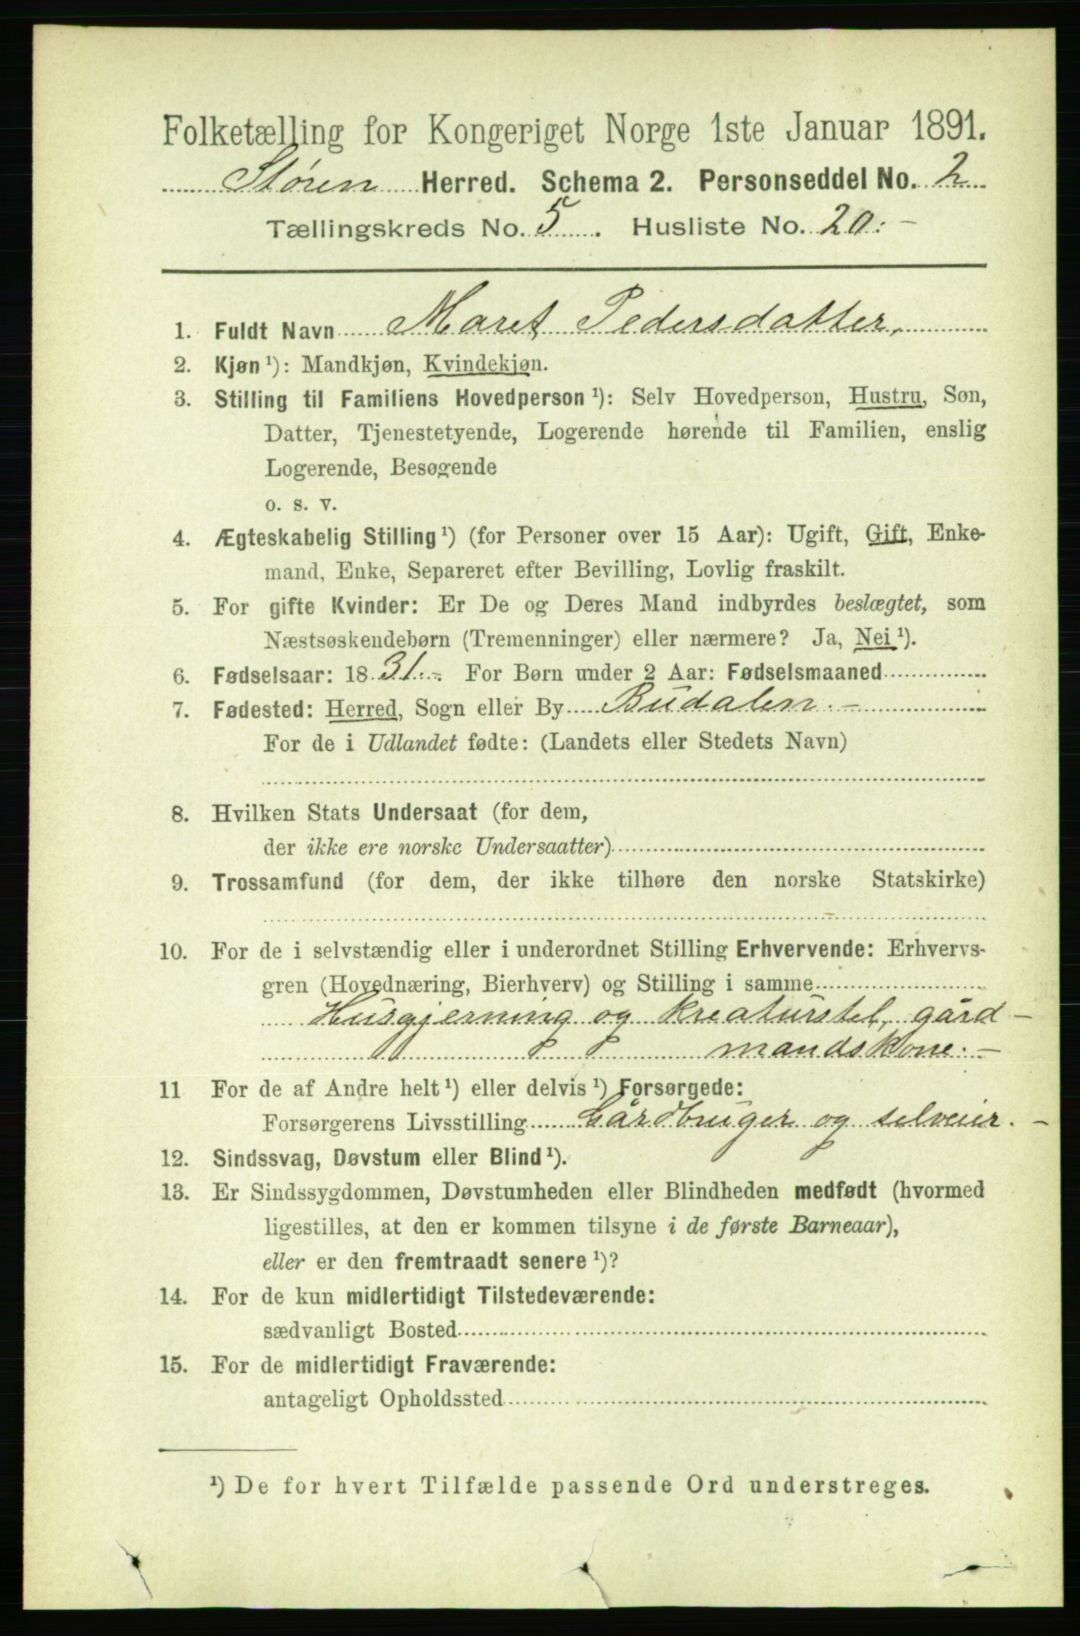 Folketælling for Kongeriget Norge 1ste Januar 1891.
Støren Herred. Schema 2. Personseddel No. 2
Tællingskreds No. 5. Husliste No. 20.-
1. Fuldt Navn Maret Pedersdatter,
2. Kjøn ¹): Mandkjøn, Kvindekjøn.
3. Stilling til Familiens Hovedperson ¹): Selv Hovedperson, Hustru, Søn,
Datter, Tjenestetyende, Logerende hørende til Familien, enslig
Logerende, Besøgende
o. s. v.
4. Ægteskabelig Stilling ¹) (for Personer over 15 Aar): Ugift, Gift, Enke-
mand, Enke, Separeret efter Bevilling, Lovlig fraskilt.
5. For gifte Kvinder: Er De og Deres Mand indbyrdes beslægtet, som
Næstsøskendebørn (Tremenninger) eller nærmere? Ja, Nei ¹).
6. Fødselsaar: 1831.- For Børn under 2 Aar: Fødselsmaaned
7. Fødested: Herred, Sogn eller By Budalen.-
For de i Udlandet fødte: (Landets eller Stedets Navn)
8. Hvilken Stats Undersaat (for dem,
der ikke ere norske Undersaatter)
9. Trossamfund (for dem, der ikke tilhøre den norske Statskirke)
10. For de i selvstændig eller i underordnet Stilling Erhvervende: Erhvervs-
gren (Hovednæring, Bierhverv) og Stilling i samme
Husgjerning og kreaturstel, gård-
mandskone.-
11 For de af Andre helt ¹) eller delvis ¹) Forsørgede:
Forsørgerens Livsstilling Gårdbruger og selveier.-
12. Sindssvag, Døvstum eller Blind ¹).
13. Er Sindssygdommen, Døvstumheden eller Blindheden medfødt (hvormed
ligestilles, at den er kommen tilsyne i de første Barneaar),
eller er den fremtraadt senere ¹)?
14. For de kun midlertidigt Tilstedeværende:
sædvanligt Bosted
15. For de midlertidigt Fraværende:
antageligt Opholdssted
¹) De for hvert Tilfælde passende Ord understreges.